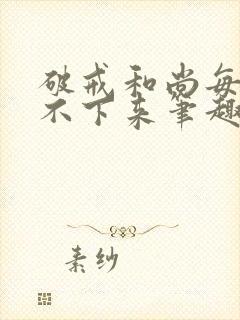 破戒和尚每
不下来笔趣
素纱